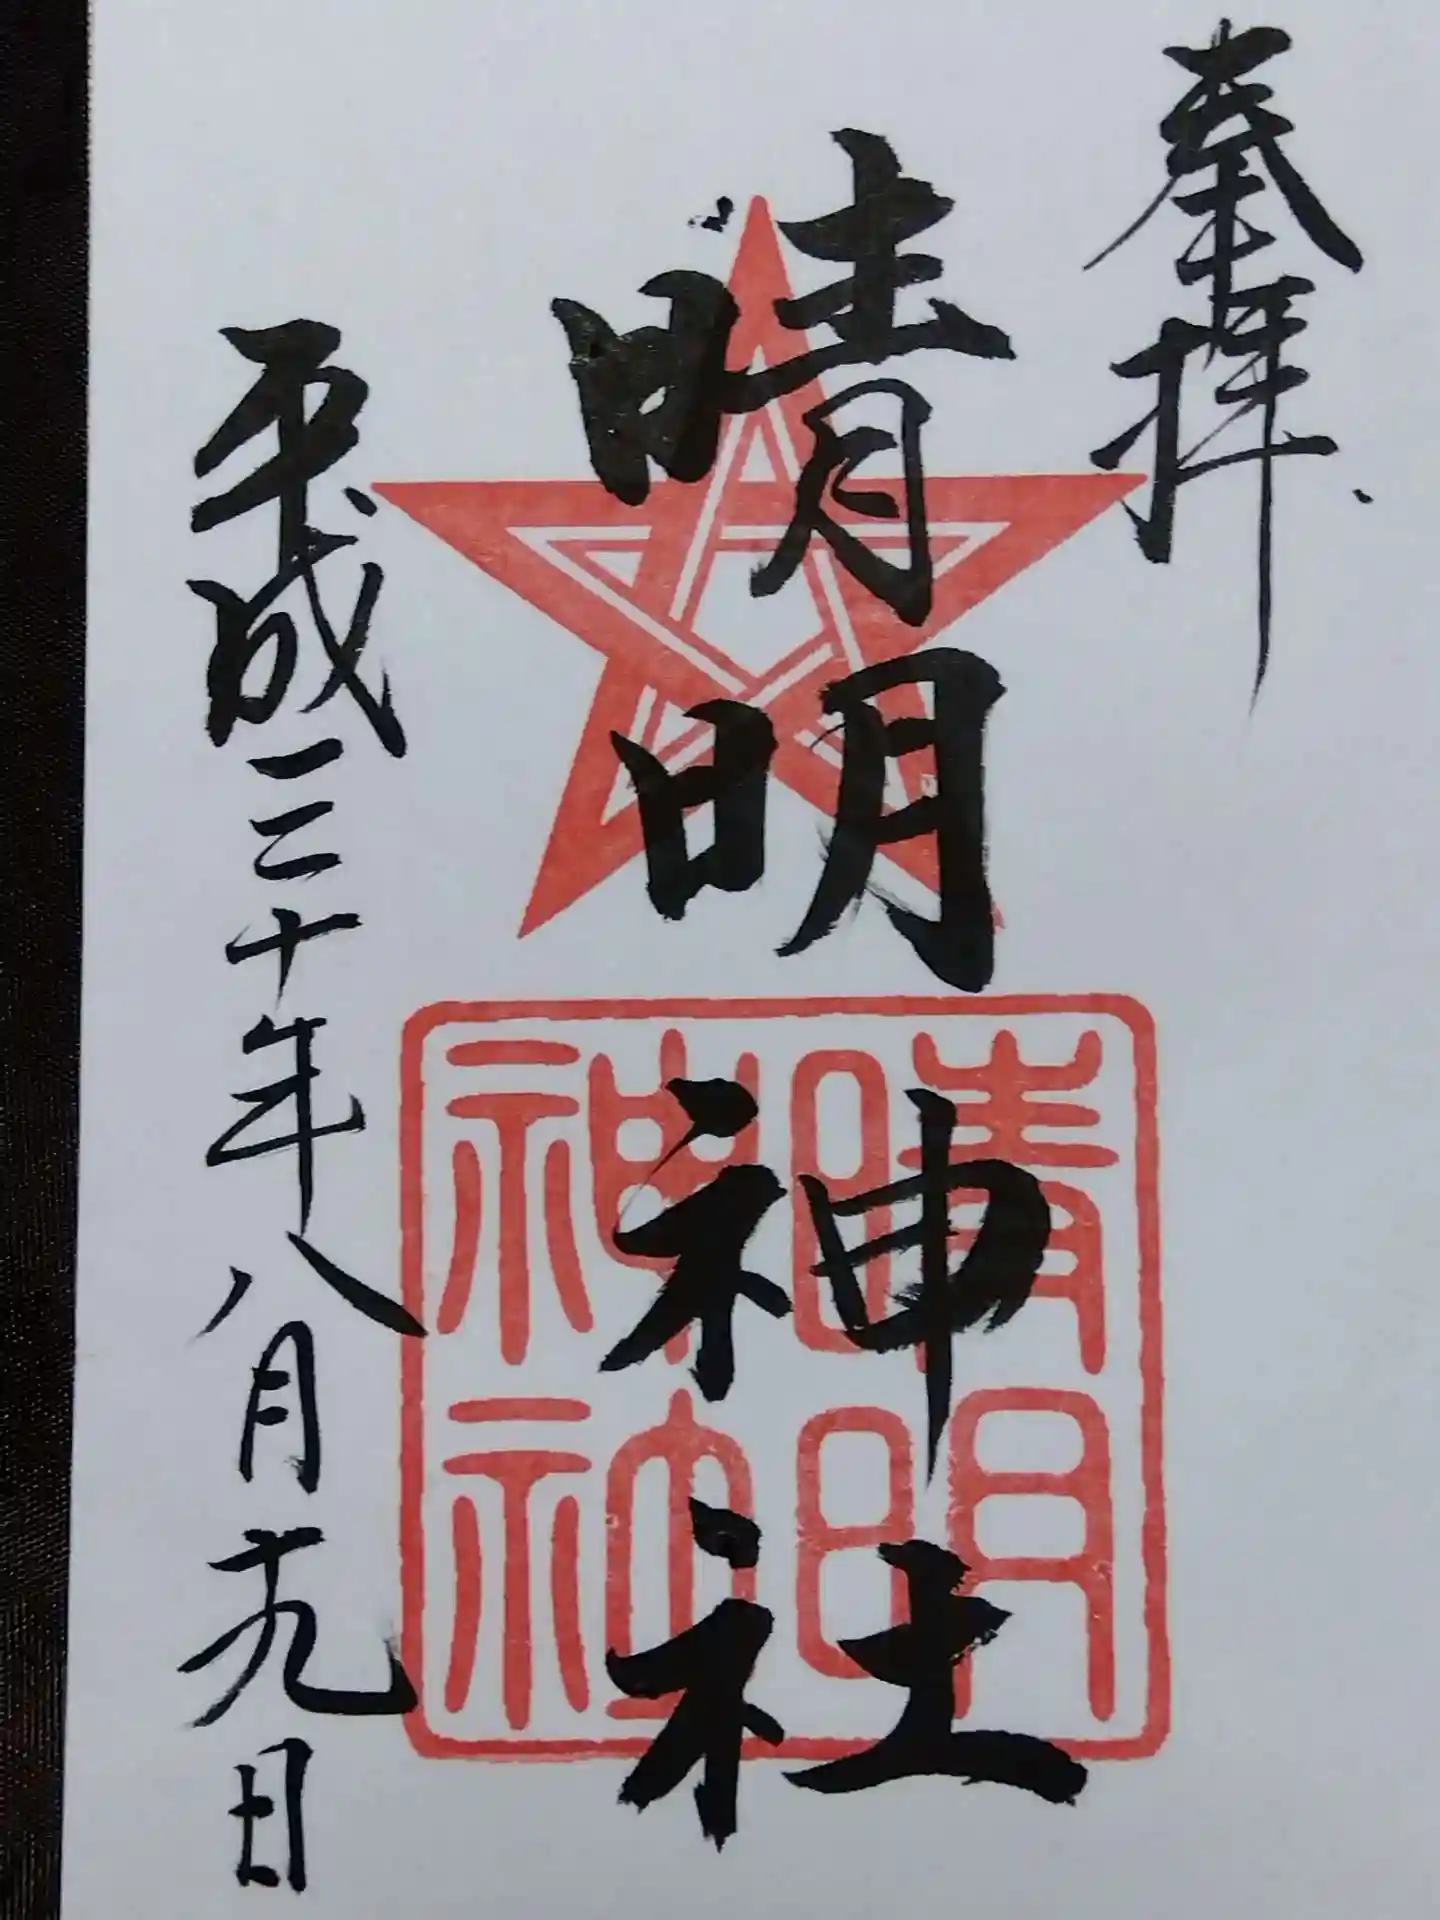 奉拝
晴明神社
晴明
神社
平成三十年八月十九日